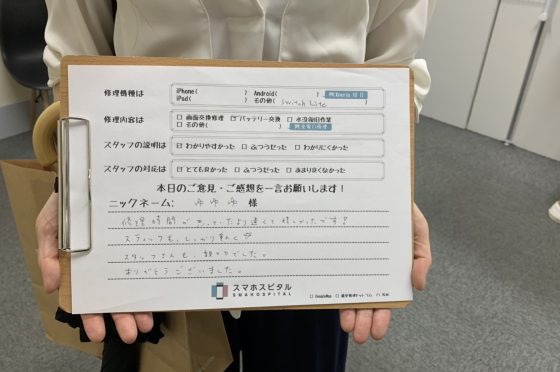 修理機種は iPhone( ) Android( )
iPad( ) その他( Switch Lite )
修理内容は □ 画面交換修理 ☑ バッテリー交換 □ 水没復旧作業
□ その他( )
スタッフの説明は ☑ わかりやすかった □ ふつうだった □ わかりにくかった
スタッフの対応は ☑ とても良かった □ ふつうだった □ あまり良くなかった
本日のご意見・ご感想を一言お願いします！
ニックネーム: ゆゆゆ 様
修理時間が思っていたより速くて嬉しかったです！
スティックも、しっかり動く
スタッフさんも、親切でした。
ありがとうございました。
スマホスピタル
SMAHOSPITAL